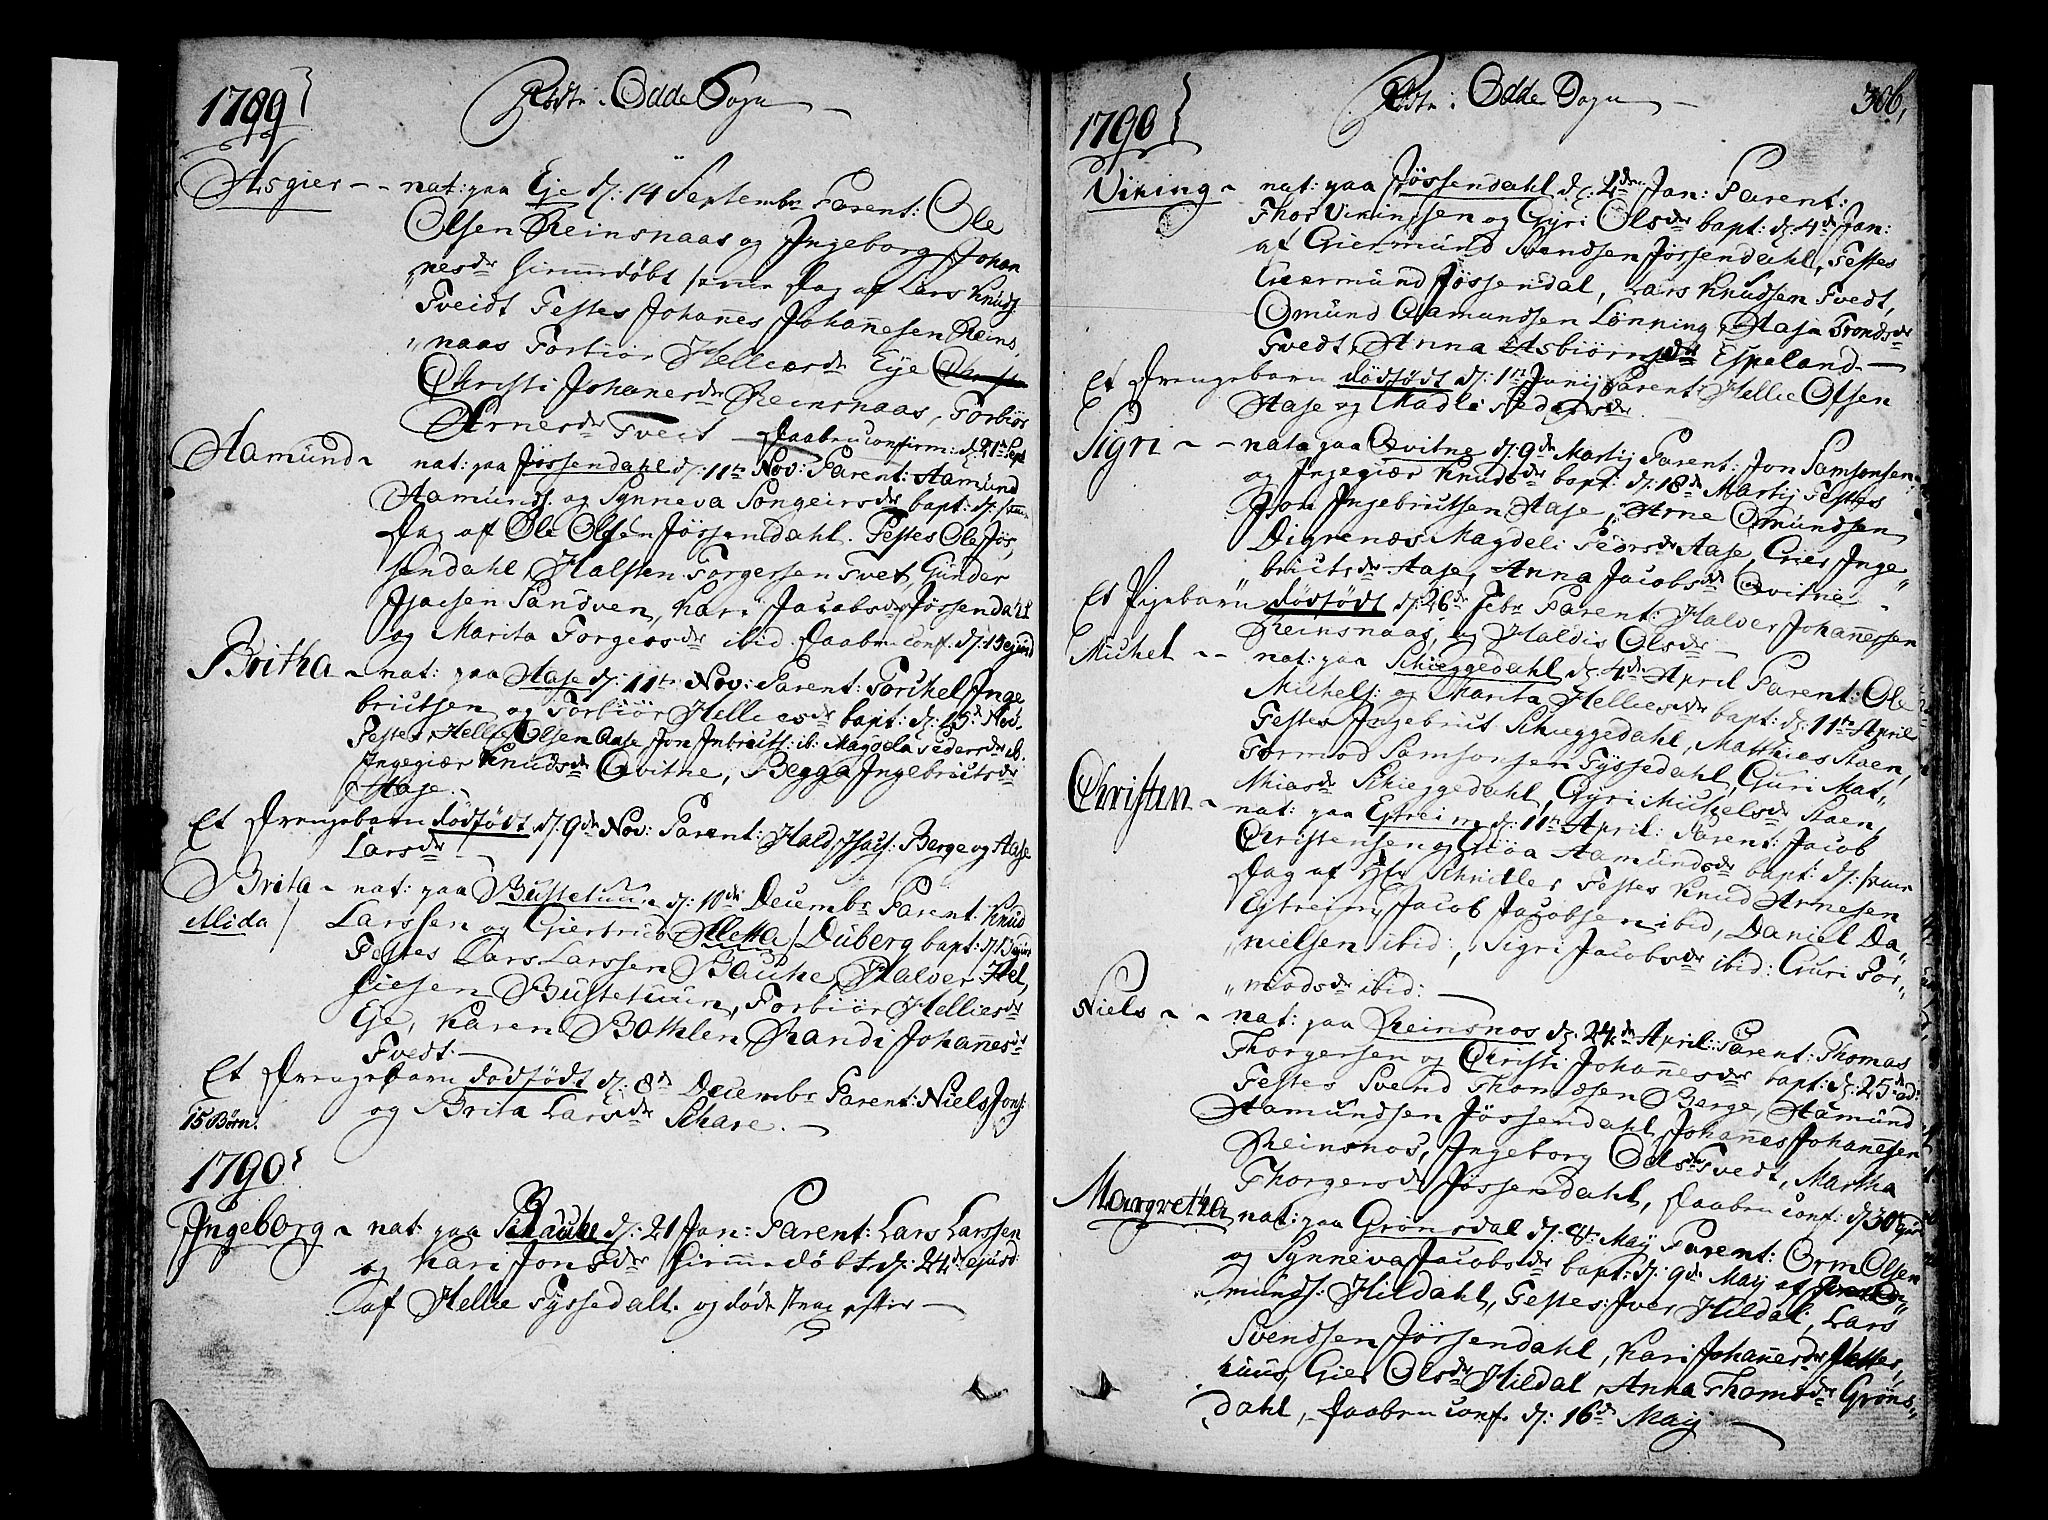 1789
Födte i Odde Sogn
Asgier - - nat: paa Eje d: 14 Septembr Parent: Ole
Olsen Reinsnaas og Ingeborg Johan
nesdr hiemdøbt samme Dag af Lars Knuds:
Tveidt Testes Johañes Johañesen Reins,
"naas Torbiör Helliesdr Eije
Christi Johanesdr Reinsnaas, Torbiör
Arnesdr Tveit Daaben confirm: d: 21 Sept
Aamund - nat: paa Jössendahl d: 11te Nov: Parent: Aamund
Aamunds. og Synneva Songeirsdr bapt: d: samme
Dag af Ole Olsen Jössendahl. Testes Ole Jös,
sendahl, Halsten Torgersen Tvet, Gunder
Isacsen Sandven, Kari Jacobsdr Jössendahl
og Marita Torgersdr ibid. Daaben conf. d: 15 ejusd
Britha - nat: paa Aase d: 11te Nov: Parent: Torchel Inge
brictsen og Torbiör Helliesdr bapt: d: 15d Nov.
Testes, Hellie Olsen Aase Jon Inbricts: ib: Magdela Pedersdr ib.
Ingegiær Knudsdr Qvitne, Begga Ingebrictsdr
Aase.
Et Drengebarn dödfödt d: 9de Nov: Parent: Hald Isacs: Berge og Aase
Larsdr
Brita - nat: paa Bustetuun d: 10de Decembr Parent: Knud
Alida / Larssen og Giertrud Aletta / Duberg bapt: d:
Testes Lars Larssen Bauke, Halver Hel
liesen Bustetuun, Torbiör Helliesdr
Eje, Karen Bothlen, Randi Johañesdr
Tvedt.
Et Drengebarn dödfödt d: 8d Decembr Parent: Niels Jons:
og Brita Larsdr Schare.
15 Börn.
1790
Ingeborg - nat: paa d: 21 Jan: Parent: Lars Larssen
og Kari Jonsdr hiemdöbt d: 24de ejusd:
af Hellie Tyssedall. og döde strax efter
1790
Födte i Odde Sogn
306,
Viking - nat: paa Jössendahl d: 2den Jan: Parent:
Thor Vikingsen og Gyri Olsdr bapt: d: 4de Jan:
af Giermund Svendsen Jössendahl, Testes
Giermund Jössendal, Lars Knudsen Tvedt,
Omund Aamundsen Lönning, Aasa Trondsdr
Tvedt, Anna Asbiörnsdr Espeland.
Et Drengebarn dödfödt d: 1te Junij Parent: Hellie Olsen
Aase og Madli Pedersdr.
Sigri - - nata paa Qvitne d: 9de Martij Parent: Jon Samsonsen
og Ingegiær Knudsdr bapt: d: 18de Martij Testes
Jon Ingebrictsen Aase, Arne Omundsen
Digrenes Magdeli Pedrsdr Aase, Gier Inge
brictsdr Aase, Anna Jacobsdr Qvitne
Et Pigebarn dödfödt d: 26de Febr Parent: Halver Johañessen
Reinsnaas, og Haldis Olsdr
Michel - - nat: paa Schieggedahl d: 4de April Parent: Ole
Michels: og Marita Helliesdr bapt: d: 11te April
Testes Ingebrict Schieggedahl, Matthies Staen,
Tormod Samsonsen Tyssedahl, Guri Mat,
thiasdr Schieggedahl, Gyri Michelsdr Staen,
Christen - nat: paa Eitreim d: 11te April: Parent: Jacob
Christensen og Gröa Aamundsdr bapt: d: samme
Dag af Hr Schnitler Testes Knud Arnesen
Eitreim, Jacob Jacobsen ibid, Daniel Da,,
"nielsen ibid:, Sigri Jacobsdr ibid: Guri Tor,,
"modsdr ibid:
Niels - - nat: paa Reinsnos d: 24de April: Parent: Thomas
Thorgersen og Christi Johañesdr bapt: d: 25de
Testes Svend Thomasen Berge, Aamund
Aamundsen Jössendahl, Johañes Johañesen
Reinsnos, Ingeborg Olsdr Tvedt, Martha
Thorgersdr Jössendahl, Daaben conf: d: 30
Margretha nat: paa Grönsdal d: 8de Maij Parent: Orm Olsen
og Synneva Jacobsdr bapt: d: 9de Maij af
"munds: Hildahl, Testes: Iver Hildal, Lars
Svendsen Jössendahl, Kari Johañesdr Jösse,
huus, Gier Olsdr Hildal, Anna Thomsdr Gröns,,
dahl, Daaben conf. d: 16de Maij